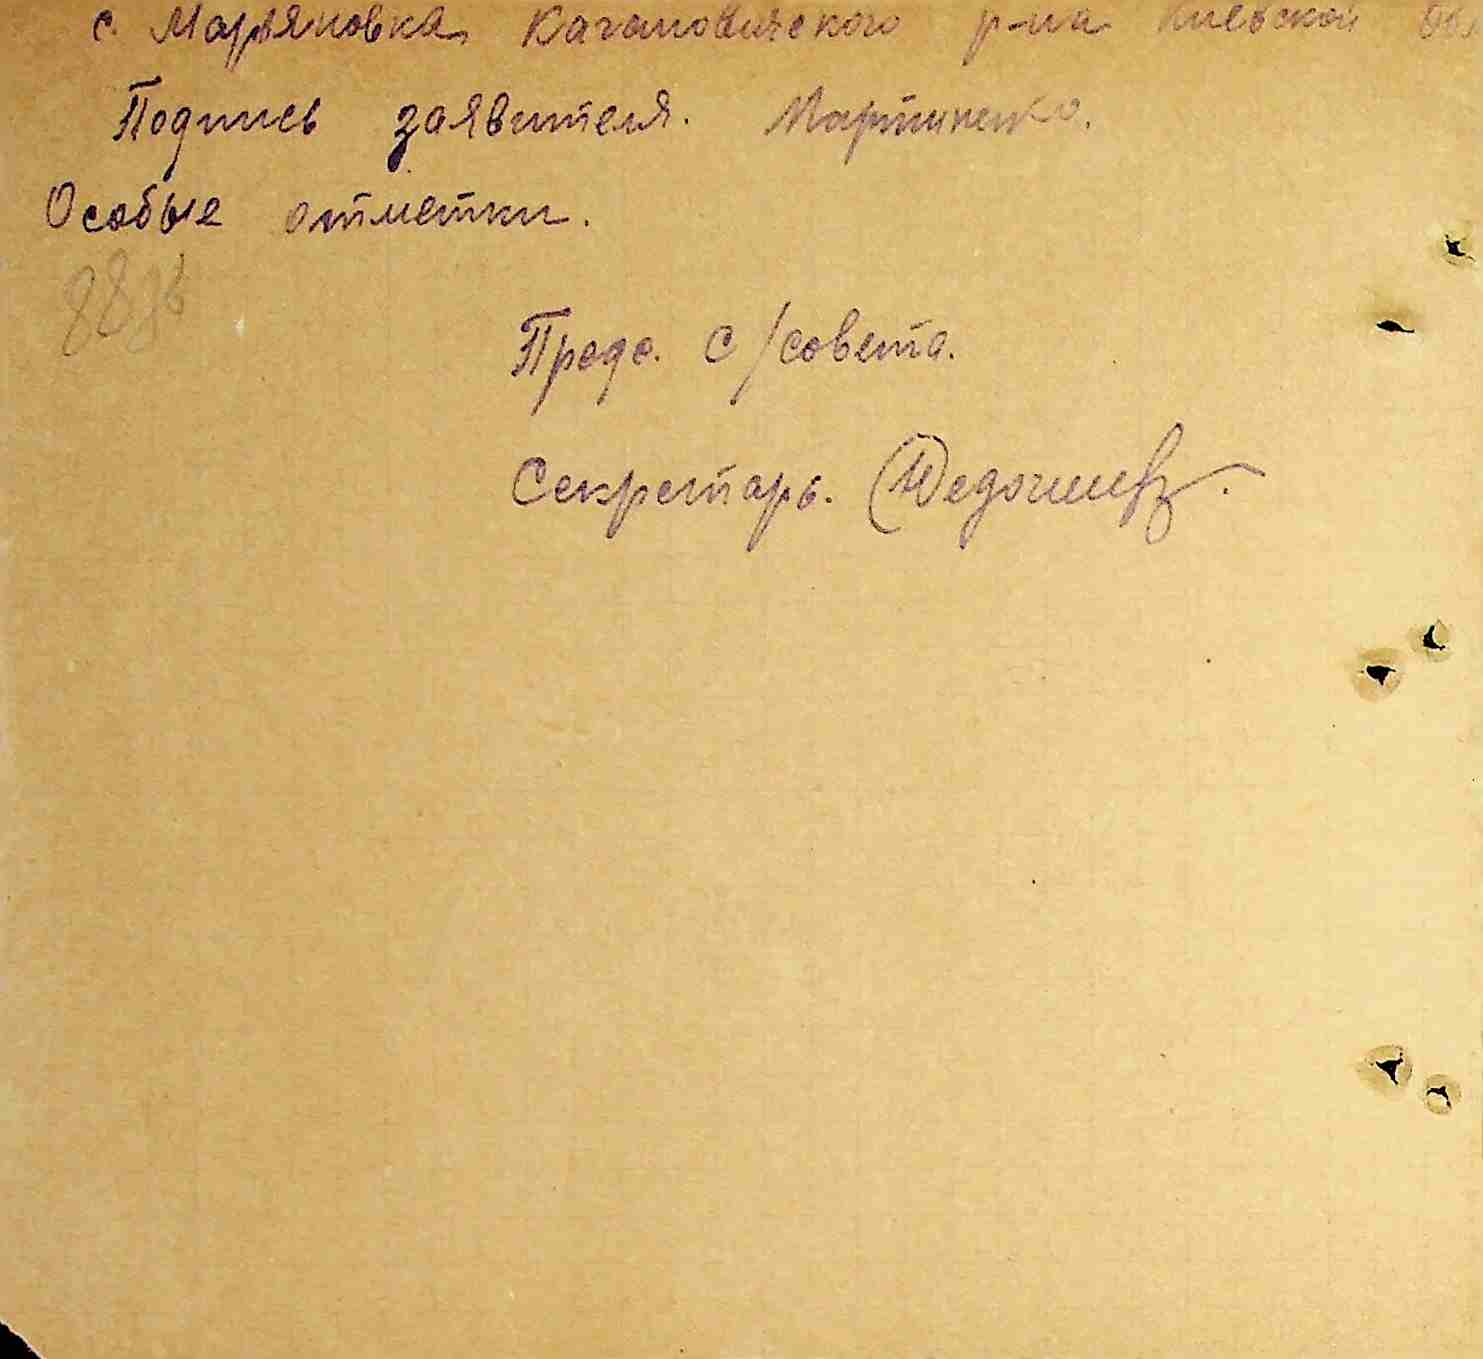 с. Марьяновка, Кагановичского р-на Киевской обл
Подпись заявителя. Мартиненко.
Особые отметки.
Предс. с/совета.
Секретарь.